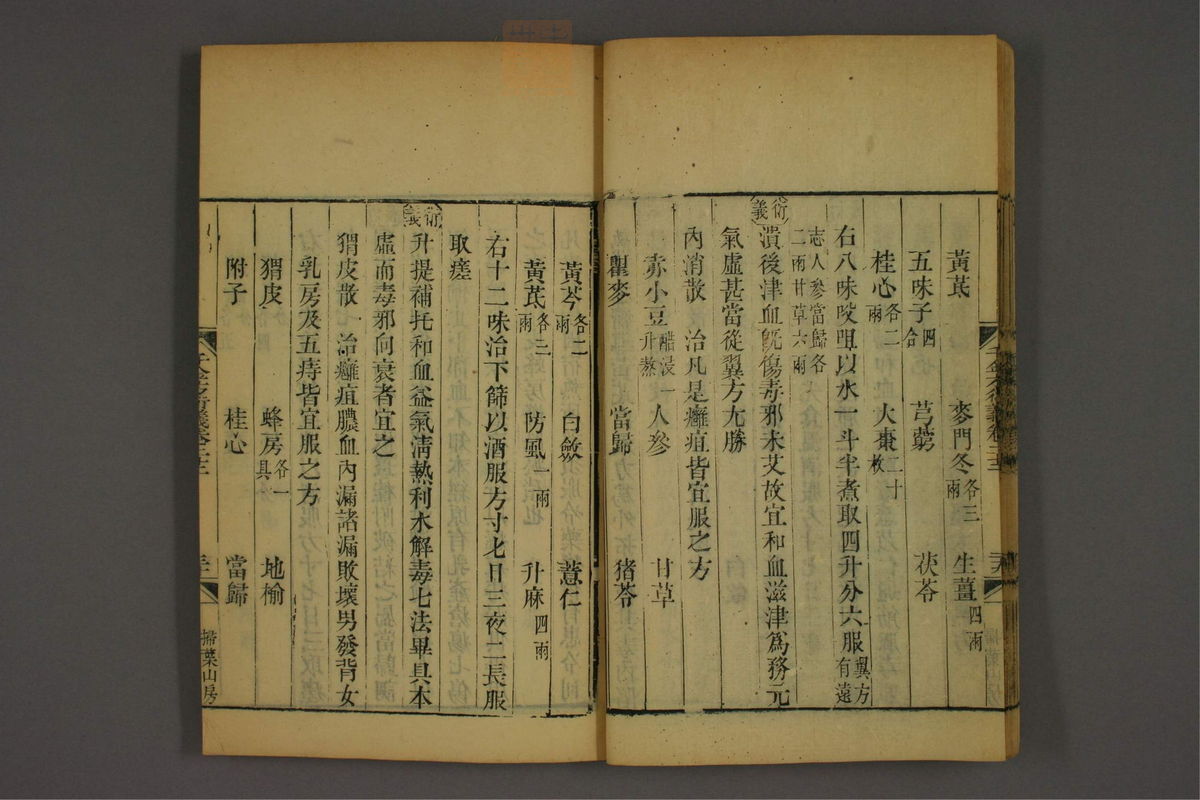 黃芪 麥門冬各三兩 生薑四兩
五味子四合 芎藭 茯苓
桂心各二兩 大棗二十枚
右八味㕮咀以水一斗半煮取四升分六服翼方有遠
志人參當歸各二兩甘草六兩
衍義 潰後津血既傷毒邪未艾故宜和血滋津爲務元
氣虛甚當從翼方尤勝
內消散 治凡是癰疽皆宜服之方
赤小豆一升醋浸熬 人參 甘草
瞿麥 當歸 猪苓
黃芩各二兩 白斂 薏仁
黃芪各三兩 防風一兩 升麻四兩
右十二味治下篩以酒服方寸匕日三夜二長服
取瘥
衍義 升提補托和血益氣淸熱利水解毒七法畢具本
虛而毒邪向衰者宜之
猬皮散 治癰疽膿血內漏諸漏敗壞男發背女
乳房及五痔皆宜服之方
猬皮 蜂房各一具 地榆
附子 桂心 當歸
千金方衍義卷二十三
掃葉山房